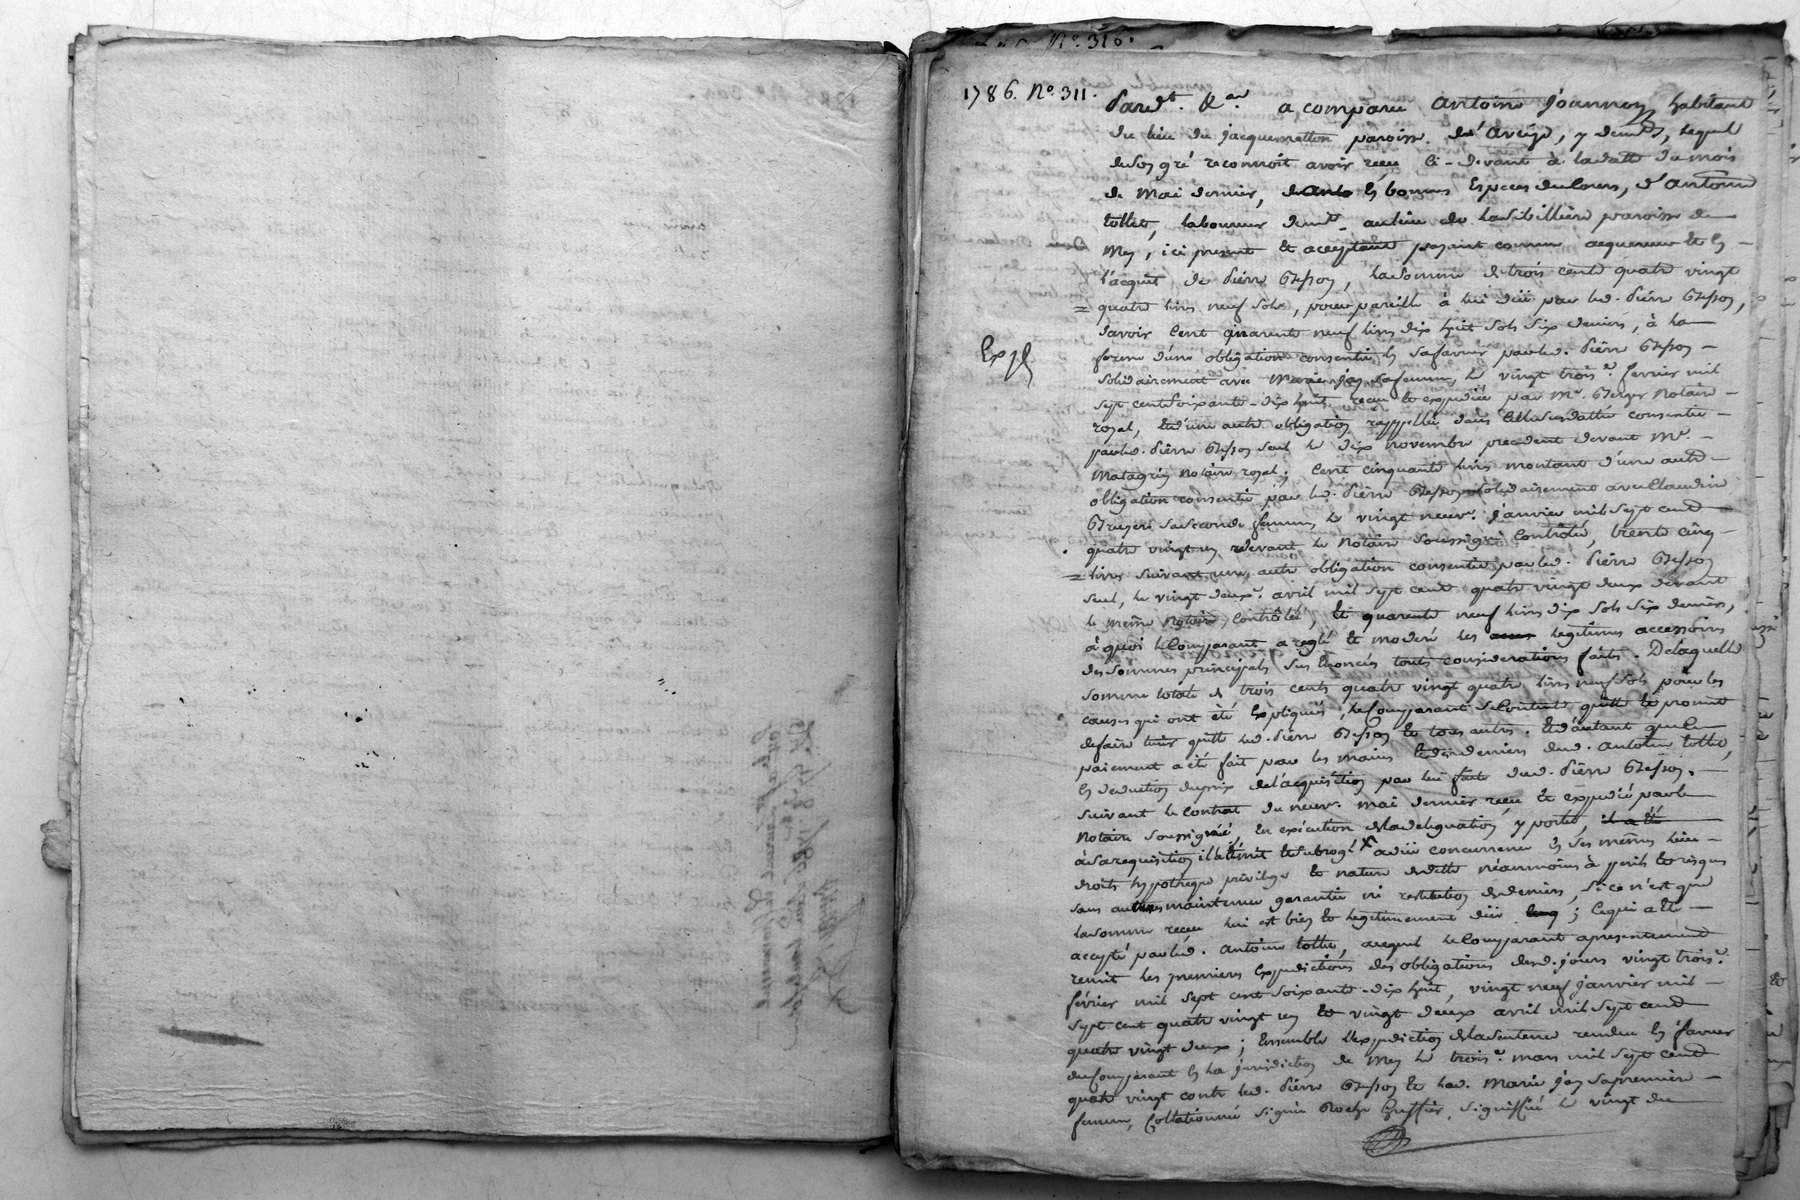 N°. 316.
1786. N°. 311.
Pardt. &a. a comparu antoine Joannon habitant
du lieu du jacquemetton paroisse d'aveize, y demt, lequel
de son gré reconnoit avoir reçu ci-devant à la datte du mois
de mai dernier, en bonnes especes du cours, d'antoine
tollet, laboureur demt. au lieu de la paroisse de
Mey, ici present et acceptant payant comme acquereur et en
l'acquet de Pierre Besson, la somme de trois cents quatre vingt
quatre livres neuf sols, pour pareille à lui düe par led. Pierre Besson,
Savoir Cent quarente neuf livres dix huit sols six deniers, à la
Exp
forme d'une obligation consentie en sa faveur par led. Pierre Besson
solidairement avec Marie jay sa femme, le vingt trois.e fevrier mil
sept cent soixante-dix huit reçu et expediée par Me. Notaire
royal, et d'une autre obligation rappellée dans celle susdatte consentie
par led. Pierre Besson seul le dix novembre precedent devant Me.
Matagrin Notaire royal; Cent cinquante livres montant d'une autre
obligation consentie par led. Pierre Besson solidairement avec Claudine
sa seconde femme, le vingt neuv.e janvier mil sept cent
quatre vingt un devant le Notaire soussigné Controlée, trente cinq
livres suivant une autre obligation consentie par led. Pierre Besson
seul, le vingt deux.e avril mil sept cent quatre vingt deux devant
le même Notaire, Controlée, et quarente neuf livres dix sols six deniers,
à quoi le Comparant a reglé et moderé les legitimes accessoires
des sommes principales sus enoncées touts considerations faits. De laquelle
somme totale de trois cents quatre vingt quatre livres neuf sols pour les
causes qui ont été expliquées, le Comparant se contente quitte et promet
de faire tenir quitte led. Pierre Besson et tous autres. Et d'autant que le
paiement a été fait par les mains et des deniers dud. antoine tollet,
en deduction du prix de l'acquisition par lui faite dud. Pierre Besson,
suivant le contrat du neuv.e mai dernier reçu et expedié par le
Notaire soussigné, en exécution de la deleguation y portée, il a été
à sa requisition il l'a mis et subrogé à düe concurrence en ses mêmes lieu
droits hypotheque privilege et nature de dette néanmoins à perils et risques
sans autres maintenue garantie ni restitution de deniers, si ce n'est que
la somme reçue lui est bien et legitimement düe; Ce qui a été
accepté par led. antoine tollet, auquel le Comparant a presentement
remit les premieres Expeditions des obligations desd. jours vingt trois.e
février mil sept cent soixante-dix huit, vingt neuf janvier mil
sept cent quatre vingt un et vingt deux avril mil sept cent
quatre vingt deux; Ensemble l'expedition de la sentence rendue en faveur
du Comparant en la jurisdiction de Mey le trois.e mars mil sept cent
quatre vingt contre led. Pierre Besson et lad. Marie jay sa premiere
femme, Collationné signée Roche Greffier, signiffiée le vingt du